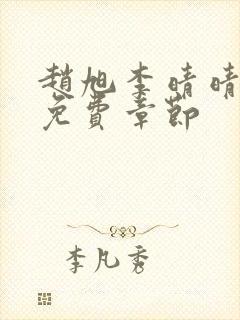 趙旭李晴晴
免費章節
李凡秀